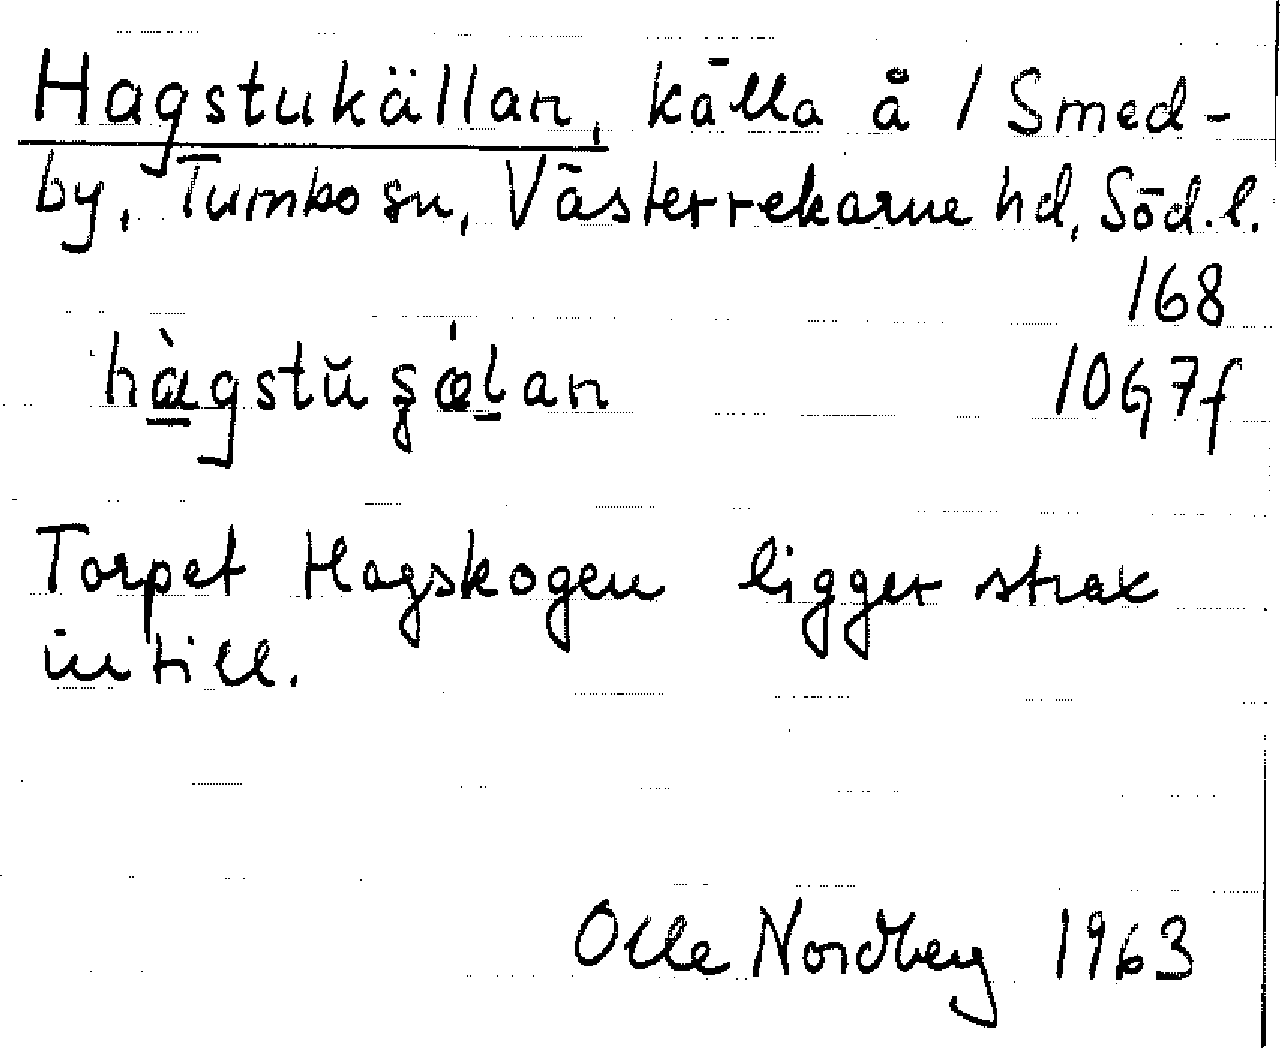 Hagstukällan, källa å / Smed-
by, Tumbo sn, Västerrekarne hd, Söd. l.
168
10G7f
Torpet Hagskogen ligger strax
intill.
Olle Nordberg 1963